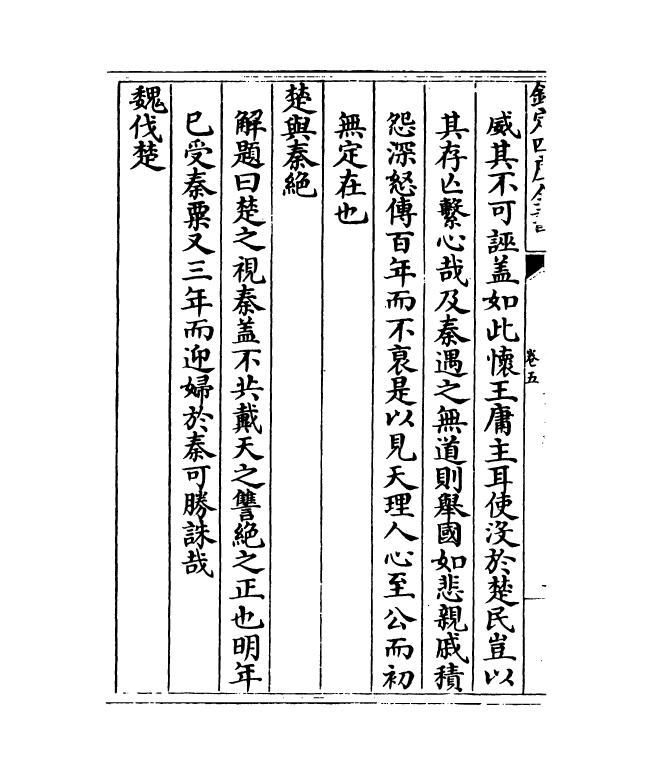 欽定四庫全書
卷五
威其不可誣盖如此懷王庸主耳使沒於楚民豈以
其存亡繫心哉及秦遇之無道則舉國如悲親戚積
怨深怒傳百年而不衰是以見天理人心至公而初
無定在也
楚與秦絶
解題曰楚之視秦蓋不共戴天之讐絶之正也明年
已受秦粟又三年而迎婦於秦可勝誅哉
魏伐楚